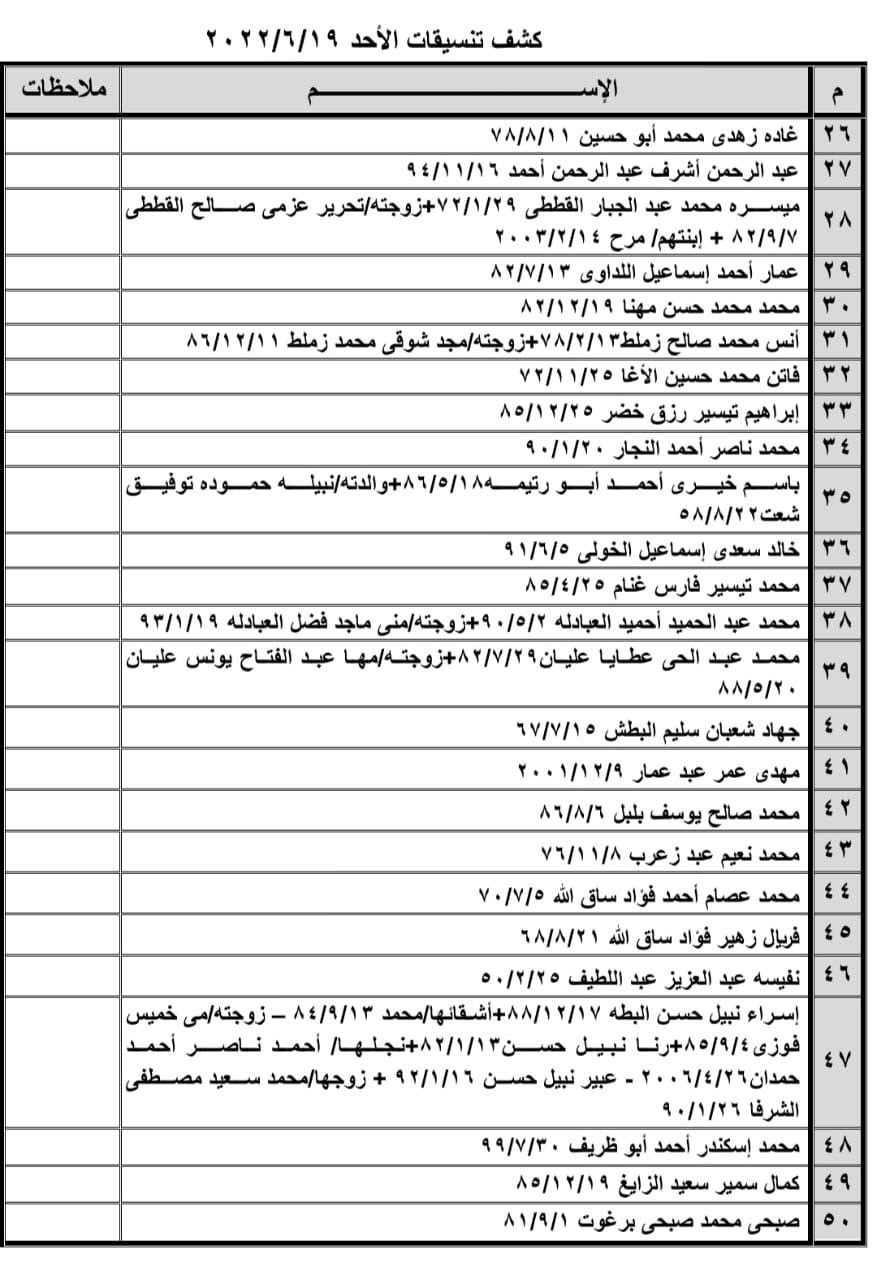 كشف تنسيقات الأحد ٢٠٢٢/٦/١٩
م الإســـــــــم ملاحظات
٢٦ غاده زهدى محمد أبو حسين ٧٨/٨/١١
٢٧ عبد الرحمن أشرف عبد الرحمن أحمد ٩٤/١١/١٦
٢٨ ميسـره محمد عبد الجبار القططى ٧٢/١/٢٩+زوجته/تحرير عزمى صـالح القططى
٨٢/٩/٧ + إبنتهم/ مرح ٢٠٠٣/٢/١٤
٢٩ عمار أحمد إسماعيل اللداوى ٨٢/٧/١٣
٣٠ محمد محمد حسن مهنا ٨٢/١٢/١٩
٣١ أنس محمد صالح زملط٧٨/٢/١٣+زوجته/مجد شوقى محمد زملط ٨٦/١٢/١١
٣٢ فاتن محمد حسين الأغا ٧٢/١١/٢٥
٣٣ إبراهيم تيسير رزق خضر ٨٥/١٢/٢٥
٣٤ محمد ناصر أحمد النجار ٩٠/١/٢٠
٣٥ باسـم خيـرى أحمـد أبـو رتيمـه٨٦/٥/١٨+والدته/نبيلـه حمـوده توفيـق
شعت٥٨/٨/٢٢
٣٦ خالد سعدى إسماعيل الخولى ٩١/٦/٥
٣٧ محمد تيسير فارس غنام ٨٥/٤/٢٥
٣٨ محمد عبد الحميد أحميد العبادله ٩٠/٥/٢+زوجته/منى ماجد فضل العبادله ٩٣/١/١٩
٣٩ محمـد عبـد الحى عطـايـا عليـان٨٢/٧/٢٩+زوجتـه/مهـا عبـد الفتـاح يونس عليـان
٨٨/٥/٢٠
٤٠ جهاد شعبان سليم البطش ٦٧/٧/١٥
٤١ مهدى عمر عبد عمار ٢٠٠١/١٢/٩
٤٢ محمد صالح يوسف بلبل ٨٦/٨/٦
٤٣ محمد نعيم عبد زعرب ٧٦/١١/٨
٤٤ محمد عصام أحمد فؤاد ساق الله ٧٠/٧/٥
٤٥ فريال زهير فؤاد ساق الله ٦٨/٨/٢١
٤٦ نفيسه عبد العزيز عبد اللطيف ٥٠/٢/٢٥
٤٧ إسـراء نبيل حسـن البطه ٨٨/١٢/١٧+أشـقائها/محمد ٨٤/٩/١٣ – زوجته/مى خميس
فوزى٨٥/٩/٤+رنـا نبيـل حسـن٨٢/١/١٣+نجلـهـا/ أحمـد نـاصـر أحمـد
حمدان٢٠٠٦/٤/٢٦ - عبير نبيل حسـن ٩٢/١/١٦ + زوجها/محمد سـعيد مصـطفى
الشرفا ٩٠/١/٢٦
٤٨ محمد إسكندر أحمد أبو ظريف ٩٩/٧/٣٠
٤٩ كمال سمير سعيد الزايغ ٨٥/١٢/١٩
٥٠ صبحى محمد صبحى برغوت ٨١/٩/١